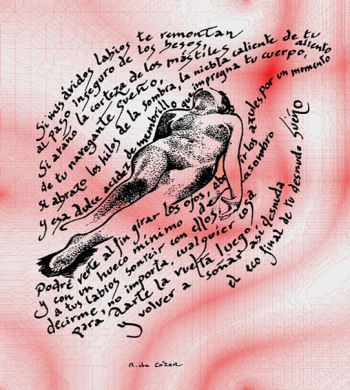 Si mis ávidos labios te remontan
al pago inseguro de los besos,
Si araño la corteza de los mástiles
de tu navegante sueño,
Si abrazo los hilos de la sombra, la niebla caliente de tu aliento
y esa dulce acidez de membrillo impregna tu cuerpo,
Podré verte al fin girar los ojos, abrirlos, azules por un momento
y con un hueco mínimo de asombro
a tus labios sonreír con ellos
decirme, no importa, cualquier cosa
para darte la vuelta luego así desnuda
y volver a soñar
el eco final de tu desnudo sueño
R. de Cózar